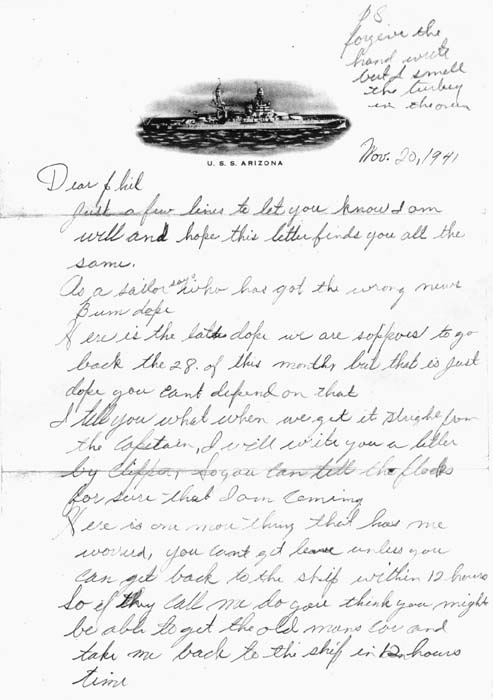 PS
forgive the
hand write
but I smell
the turkey
in the oven
U. S. S. ARIZONA
Nov. 20, 1941
Dear Phil
Just a few lines to let you know I am
well and hope this letter finds you all the
same.
As a sailor says who has got the wrong news
Bum dope
Here is the latest dope we are soppose to go
back the 28. of this month, but that is just
dope you cant depend on that
I tell you what when we get it stright from
the Capetain, I will write you a letter
by Clipper, So you can tell the flocks
for sure that I am coming
Here is one more thing that has me
worried, you cant get leave unless you
can get back to the ship within 12 hours
So if they call me do you think you might
be able to get the old mans car and
take me back to the ship in 12 hours
time